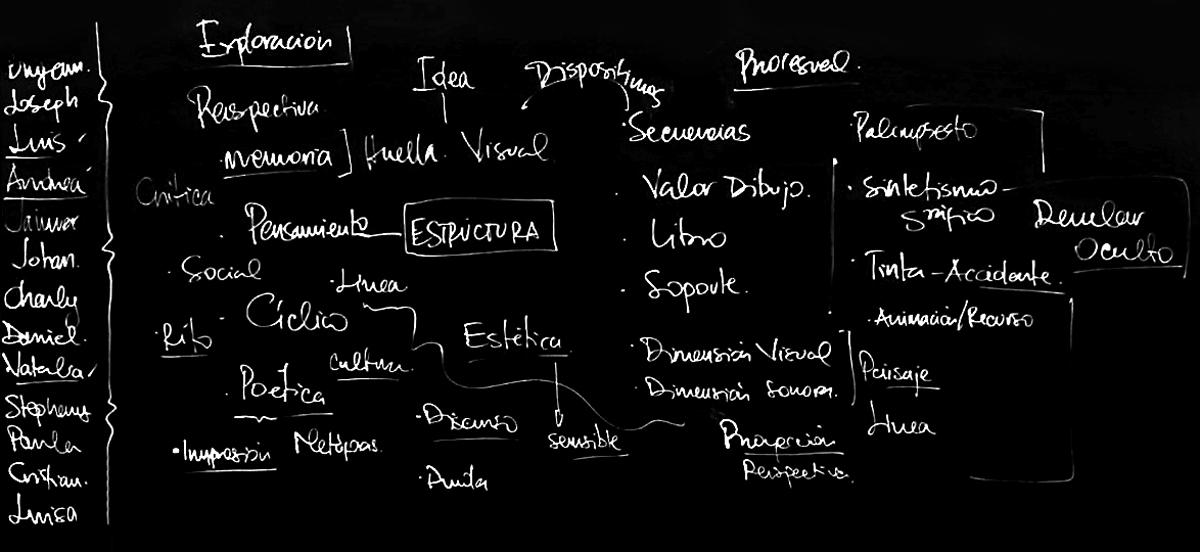 Joseph
Luis
Andrea
Johan.
Charly
Daniel.
Natalia
Stephany
Paula
Cristian.
Luisa
Exploración
Perspectiva
memoria
Huella. Visual
Idea
Dispositivos
Crítica
Pensamiento
ESTRUCTURA
Social
Linea.
Cíclico
Rito
Cultura.
Poética
Estética
Impresión
Metáforas.
Discurso
sensible
Procesual.
Secuencias
Valor Dibujo.
Libro
Soporte.
Dimensión Visual
Dimensión Sonora.
Proyección
Perspectiva.
Palimpsesto
Sintetismo
gráfico
Develar
Oculto
Tinta - Accidente.
Animación/Recurso
Paisaje
Linea